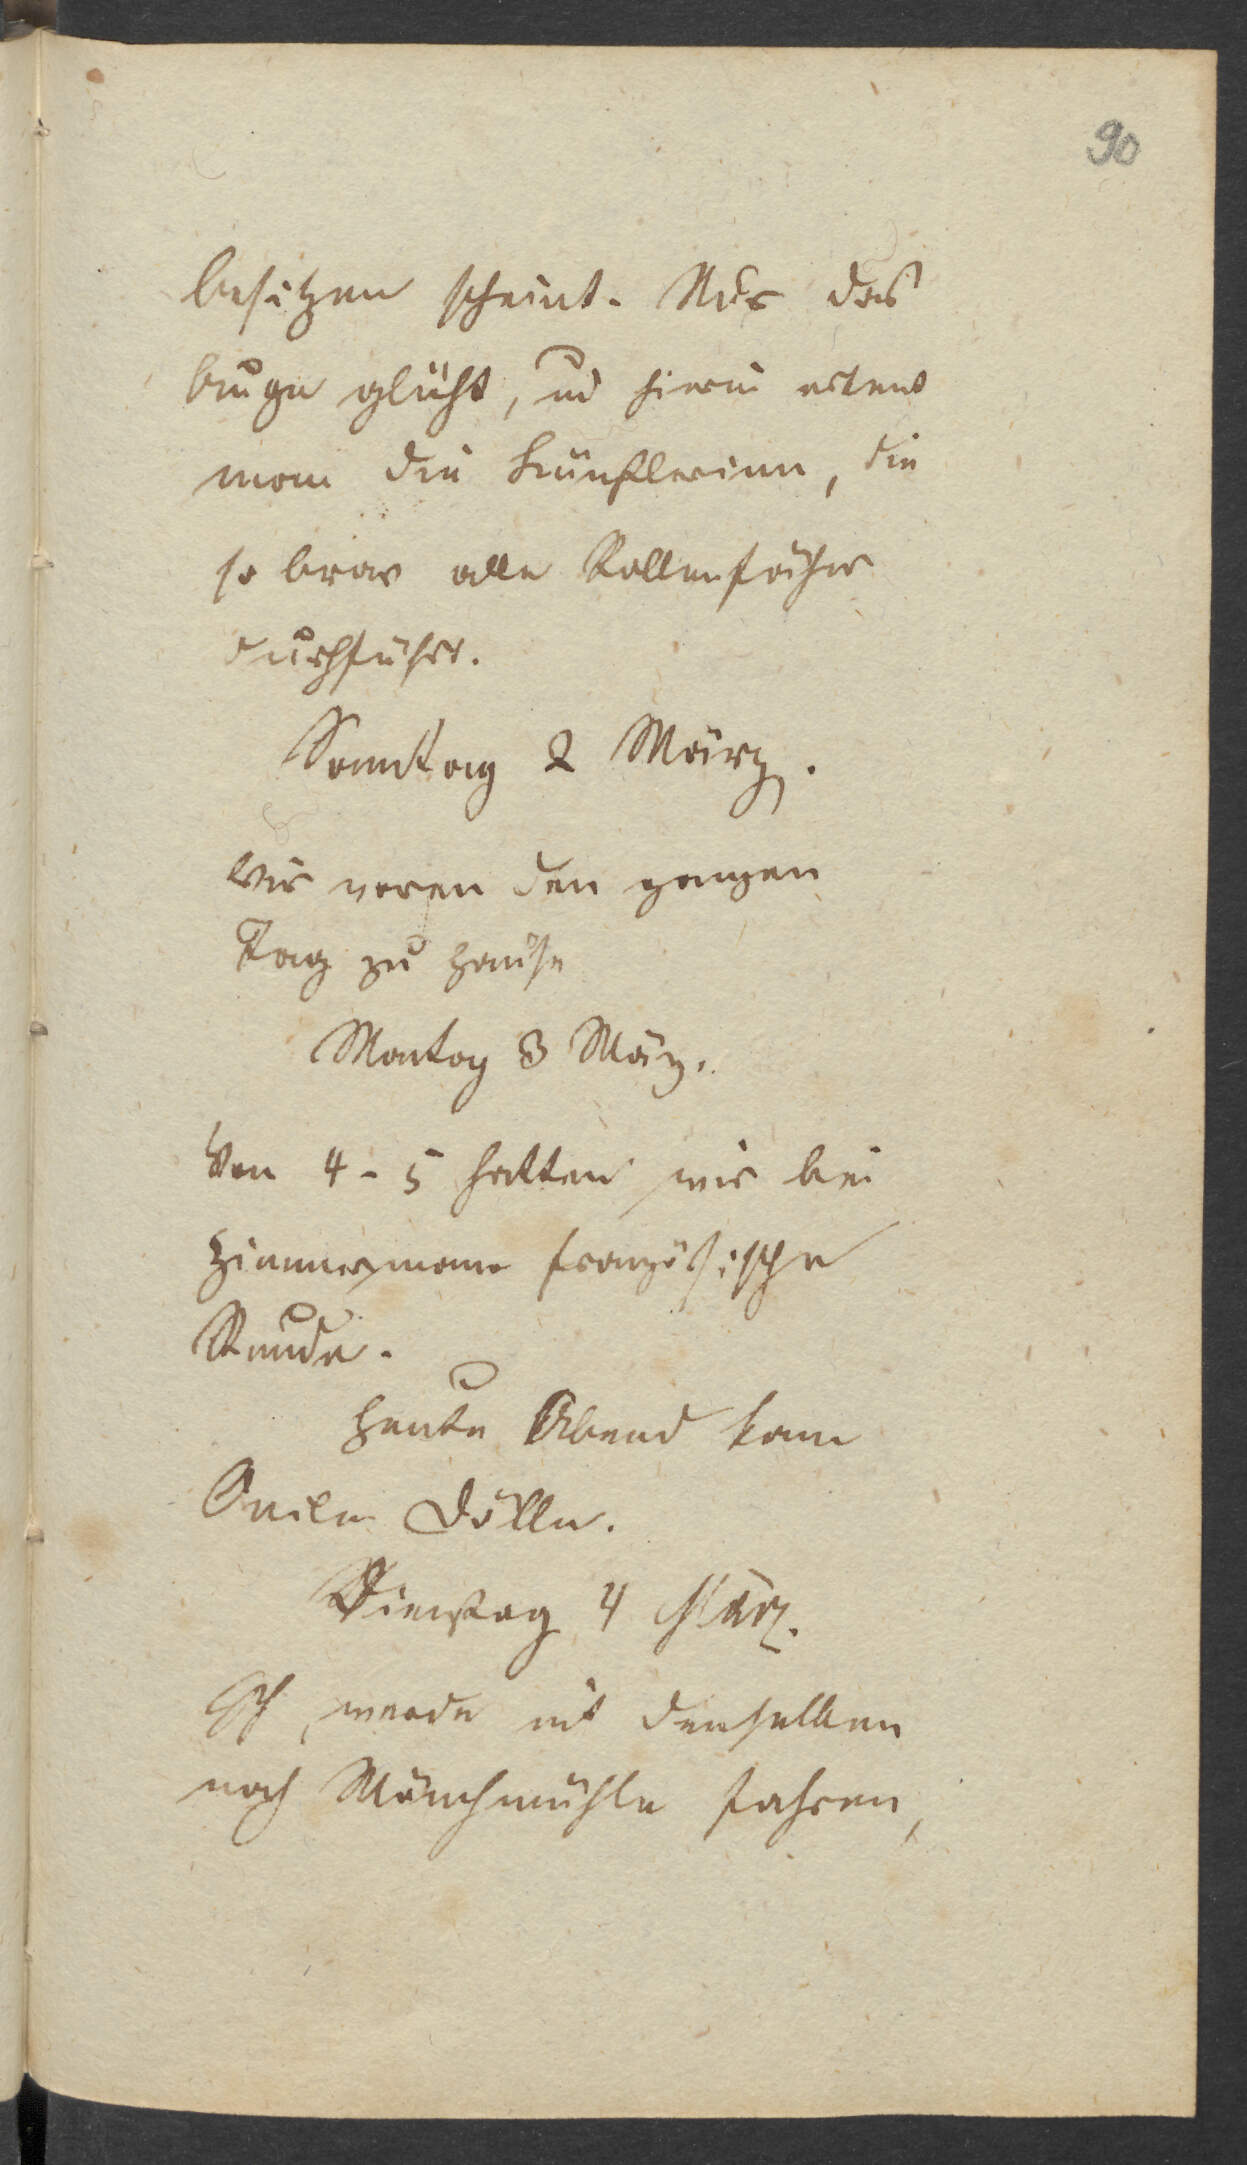 90
besitzen scheint. Nur das
Auge glüht, und hierin erkent
man die Künstlerinn, die
so brav alle Rollenfächer
durchführt.
Sonntag 2 März.
Wir waren den ganzen
Tag zu Hause
Montag 3 März.
Von 4-5 hatten wir bei
Zimmermann französische
Stunde.
Heute Abend kam
Dölle.
Dienstag 4 März.
Ich werde mit denselben
nach Mönchmühle fahren,